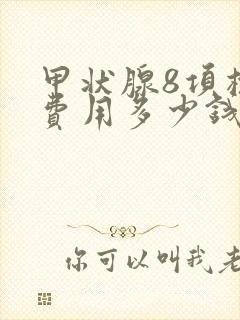 甲状腺8项
费用多少钱
你可以叫我老